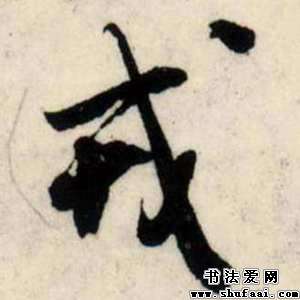 戒
书法爱网
www.shufaai.com